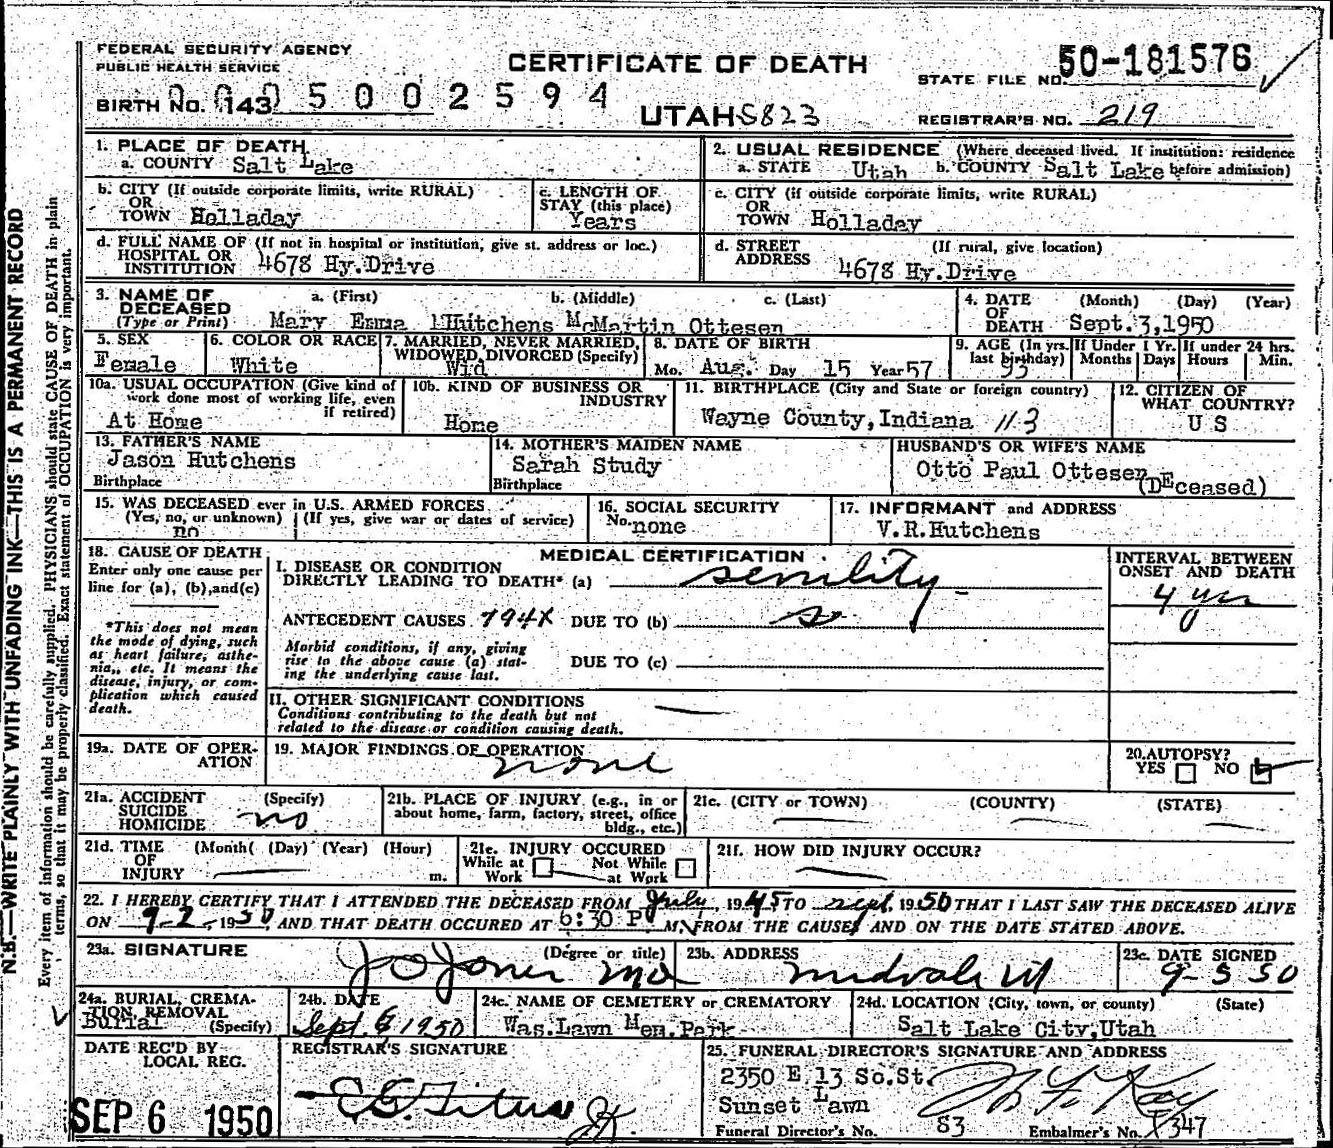 FEDERAL SECURITY AGENCY
PUBLIC HEALTH SERVICE
CERTIFICATE OF DEATH
STATE FILE NO. 50-181576
BIRTH NO. 143
0 0 0 5 0 0 2 5 9 4
UTAH 5823
REGISTRAR'S NO. 219
1. PLACE OF DEATH
a. COUNTY Salt Lake
2. USUAL RESIDENCE (Where deceased lived. If institution: residence before admission)
a. STATE Utah b. COUNTY Salt Lake
b. CITY (If outside corporate limits, write RURAL)
OR
TOWN Holladay
c. LENGTH OF
STAY (this place)
Years
c. CITY (if outside corporate limits, write RURAL)
OR
TOWN Holladay
d. FULL NAME OF (If not in hospital or institution, give st. address or loc.)
HOSPITAL OR
INSTITUTION 4678 Hy.Drive
d. STREET (If rural, give location)
ADDRESS 4678 Hy.Drive
3. NAME OF a. (First) b. (Middle) c. (Last)
DECEASED
(Type or Print) Mary Emma Hutchens McMartin Ottesen
4. DATE (Month) (Day) (Year)
OF
DEATH Sept.3,1950
5. SEX
Female
6. COLOR OR RACE
White
7. MARRIED, NEVER MARRIED,
WIDOWED, DIVORCED (Specify)
Wid
8. DATE OF BIRTH
Mo. Aug. Day 15 Year 57
9. AGE (In yrs. last birthday)
93
If Under 1 Yr.
Months Days
If under 24 hrs.
Hours Min.
10a. USUAL OCCUPATION (Give kind of
work done most of working life, even
if retired)
At Home
10b. KIND OF BUSINESS OR
INDUSTRY
Home
11. BIRTHPLACE (City and State or foreign country)
Wayne County,Indiana 113
12. CITIZEN OF
WHAT COUNTRY?
U S
13. FATHER'S NAME
Jason Hutchens
Birthplace
14. MOTHER'S MAIDEN NAME
Sarah Study
Birthplace
HUSBAND'S OR WIFE'S NAME
Otto Paul Ottesen
(DEceased)
15. WAS DECEASED ever in U.S. ARMED FORCES
(Yes, no, or unknown) (If yes, give war or dates of service)
no
16. SOCIAL SECURITY
No. none
17. INFORMANT and ADDRESS
V.R.Hutchens
18. CAUSE OF DEATH
Enter only one cause per
line for (a), (b),and(c)
*This does not mean
the mode of dying, such
as heart failure, asthe-
nia,, etc. It means the
disease, injury, or com-
plication which caused
death.
MEDICAL CERTIFICATION
I. DISEASE OR CONDITION
DIRECTLY LEADING TO DEATH* (a) senility
ANTECEDENT CAUSES 794X DUE TO (b)
Morbid conditions, if any, giving
rise to the above cause (a) stat-
ing the underlying cause last.
DUE TO (c)
INTERVAL BETWEEN
ONSET AND DEATH
4 yrs
II. OTHER SIGNIFICANT CONDITIONS
Conditions contributing to the death but not
related to the disease or condition causing death.
19a. DATE OF OPER-
ATION
19. MAJOR FINDINGS OF OPERATION
none
20. AUTOPSY?
YES NO
21a. ACCIDENT (Specify)
SUICIDE
HOMICIDE no
21b. PLACE OF INJURY (e.g., in or
about home, farm, factory, street, office
bldg., etc.)
21c. (CITY or TOWN) (COUNTY) (STATE)
21d. TIME (Month( (Day) (Year) (Hour)
OF
INJURY m.
21e. INJURY OCCURED
While at Work Not While at Work
21f. HOW DID INJURY OCCUR?
22. I HEREBY CERTIFY THAT I ATTENDED THE DECEASED FROM July, 1945 TO sept. 1950 THAT I LAST SAW THE DECEASED ALIVE
ON 9-2, 1950, AND THAT DEATH OCCURED AT 6:30 P M, FROM THE CAUSES AND ON THE DATE STATED ABOVE.
23a. SIGNATURE (Degree or title)
J O Jones MD
23b. ADDRESS
midvale Ut
23c. DATE SIGNED
9-5 50
24a. BURIAL, CREMA-
TION, REMOVAL
Burial (Specify)
24b. DATE
Sept 6 1950
24c. NAME OF CEMETERY or CREMATORY
Was.Lawn Mem.Park
24d. LOCATION (City, town, or county) (State)
Salt Lake City,Utah
DATE REC'D BY
LOCAL REG.
SEP 6 1950
REGISTRAR'S SIGNATURE
25. FUNERAL DIRECTOR'S SIGNATURE AND ADDRESS
2350 E 13 So.St.
Sunset Lawn
Funeral Director's No. 83 Embalmer's No. 347
N.B.—WRITE PLAINLY WITH UNFADING INK—THIS IS A PERMANENT RECORD
Every item of information should be carefully supplied. PHYSICIANS should state CAUSE OF DEATH in plain
terms, so that it may be properly classified. Exact statement of OCCUPATION is very important.